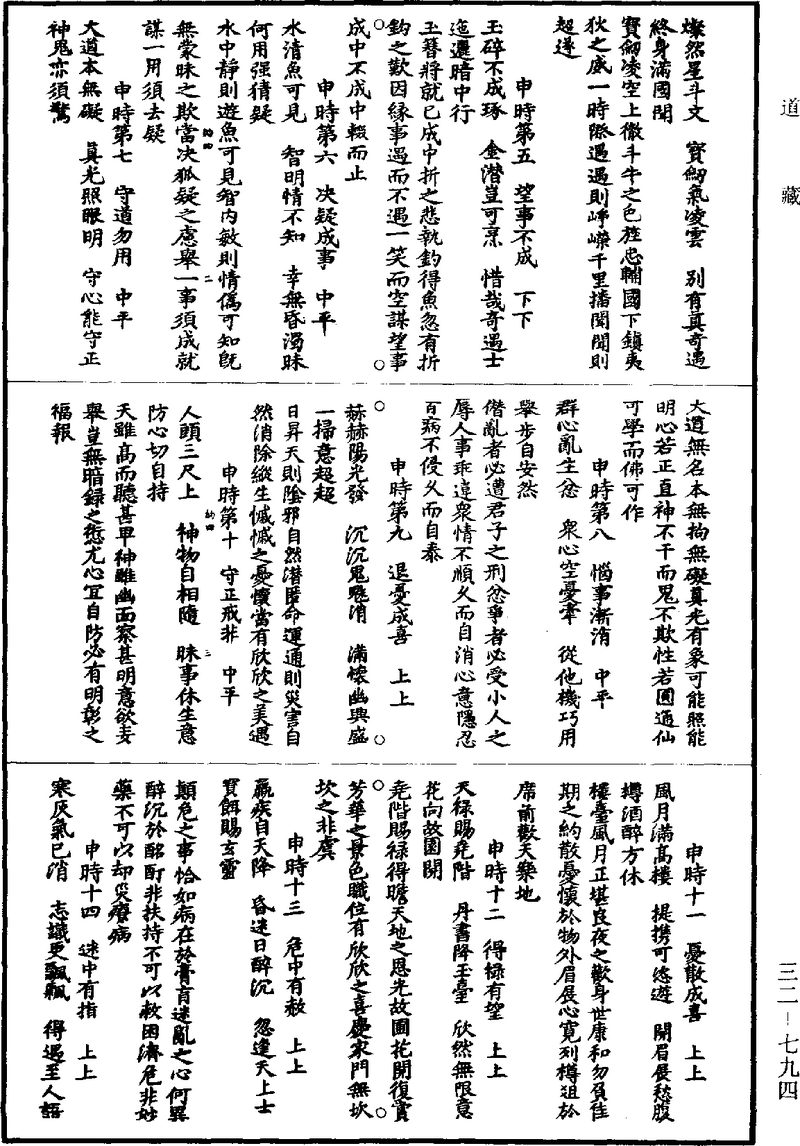 道藏
燦然星斗文　寶劒氣凌雲　別有真奇遇
終身滿國聞
寶劒凌空上徹斗牛之色旌忠輔國下鎮夷
狄之威一時際遇遇則崢嶸千里播聞聞則
超遂
申時第五　望事不成　下下
玉碎不成琢　金潜豈可烹　惜哉奇遇士
迤邐暗中行
玉簪將就已成中折之悲執釣得魚忽有折
鈎之歎因緣事遇而不遇一笑而空謀望事
成中不成中輟而止
申時第六　决疑成事　中平
水清魚可見　智明情不知　幸無昏濁昧
何用强猜疑
水中靜則遊魚可見智内敏則情僞可知旣
無蒙昧之欺當决狐疑之慮舉一事須成就
謀一用須去疑
申時第七　守道勿用　中平
大道本無礙　真光照眼明　守心能守正
神鬼亦須驚
大道無名本無拘無礙真光有象可能照能
明心若正直神不干而鬼不欺性若圓通仙
可學而佛可作
申時第八　惱事漸消　中平
群心亂生忿　衆心空憂牽　從他機巧用
舉步自安然
僭亂者必遭君子之刑忿爭者必受小人之
辱人事乖違衆情不順久而自消心意隱忍
百病不侵久而自泰
申時第九　退憂成喜　上上
赫赫陽光發　沉沉鬼魅消　滿懷幽興盛
一掃意超超
日昇天則陰邪自然潜匿命運通則災害自
然消除縱生慽慽之憂懷當有欣欣之美遇
申時第十　守正戒非　中平
人頭三尺上　神物自相隨　昧事休生意
防心切自持
天雖高而聽甚卑神雖幽面察甚明意欲妄
舉豈無暗録之愆尤心宜自防必有明彰之
福報
申時十一　憂散成喜　上上
風月滿高樓　提携可恣遊　開眉展愁腹
樽酒醉方休
樓臺風月正堪良夜之歡身世康和勿負佳
期之約散憂懷於物外眉展心寬列樽俎於
席前歡天樂地
申時十二　得祿有望　上上
天祿賜堯階　丹書降玉臺　欣然無限意
花向故園開
堯階賜祿得瞻天地之恩光故園花開復賞
芳華之景色職位有欣欣之喜慶家門無坎
坎之非虞
申時十三　危中有救　上上
羸疾自天降　昏迷日醉沉　忽逢天上士
寶餌賜玄靈
顛危之事恰如病在於膏肓迷亂之心何異
醉沉於酩酊非扶持不可以救困濟危非妙
藥不可以却災療病
申時十四　迷中有指　上上
寒灰氣已消　志識更飄飄　得遇至人語
三二－七九四